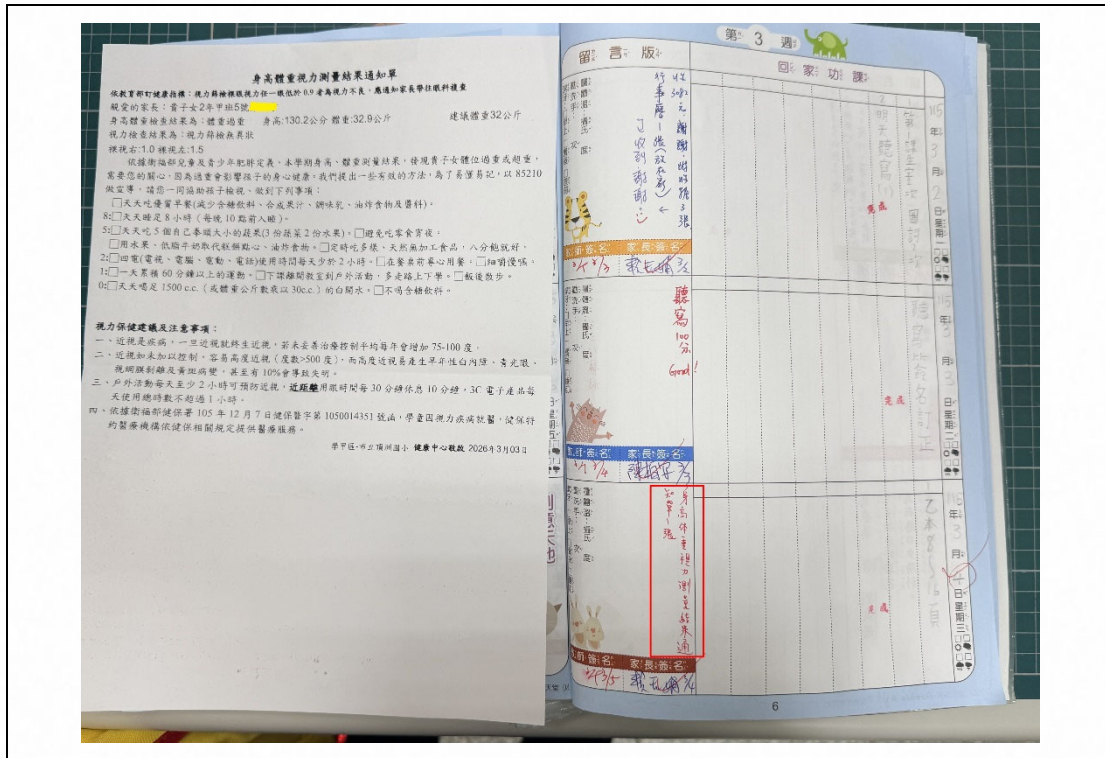 身高體重視力測量結果通知單
依教育部訂健康指標：視力篩檢裸眼視力任一眼低於0.9者為視力不良，應通知家長帶往眼科複查
親愛的家長：貴子女2年甲班5號
身高體重檢查結果為：體重過重 身高:130.2公分 體重:32.9公斤 建議體重32公斤
視力檢查結果為：視力篩檢無異狀
裸視右:1.0 裸視左:1.5
依據衛福部兒童及青少年肥胖定義，本學期身高、體重測量結果，發現貴子女體位過重或超重，
需要您的關心，因為過重會影響孩子的身心健康。我們提出一些有效的方法，為了易懂易記，以 85210
做宣導，請您一同協助孩子檢視、做到下列事項：
□天天吃優質早餐(減少含糖飲料、合成果汁、調味乳、油炸食物及醬料)。
8:□天天睡足 8 小時（每晚 10 點前入睡）。
5:□天天吃 5 個自己拳頭大小的蔬果(3 份蔬菜 2 份水果)。□避免吃零食宵夜。
□用水果、低脂牛奶取代糕餅點心、油炸食物。□定時吃多樣、天然無加工食品，八分飽就好。
2:□四電(電視、電腦、電動、電話)使用時間每天少於 2 小時。□在餐桌前專心用餐。□細嚼慢嚥。
1:□一天累積 60 分鐘以上的運動。□下課離開教室到戶外活動，多走路上下學。□飯後散步。
0:□天天喝足 1500 c.c.（或體重公斤數乘以 30c.c.）的白開水。□不喝含糖飲料。
視力保健建議及注意事項：
一、近視是疾病，一旦近視就終生近視，若未妥善治療控制平均每年會增加 75-100 度。
二、近視如未加以控制，容易高度近視（度數>500 度），而高度近視易產生早年性白內障、青光眼、
視網膜剝離及黃斑病變，甚至有 10%會導致失明。
三、戶外活動每天至少 2 小時可預防近視，近距離用眼時間每 30 分鐘休息 10 分鐘，3C 電子產品每
天使用總時數不超過 1 小時。
四、依據衛福部健保署 105 年 12 月 7 日健保醫字第 1050014351 號函，學童因視力疾病就醫，健保特
約醫療機構依健保相關規定提供醫療服務。
學甲區市立頂洲國小 健康中心敬啟 2026年3月03日
第 3 週
留言版
回家功課
115年3月2日星期一
明天聽寫(1)
完成
行事曆1張
收到 謝謝
家長簽名
3/3
115年3月3日星期二
聽寫簽名訂正
完成
聽寫100分
Good!
家長簽名
3/4
3/3
115年3月
日星期三
完成
身高体重視力測量結果通
知單1張
家長簽名
3/5
3/4
6